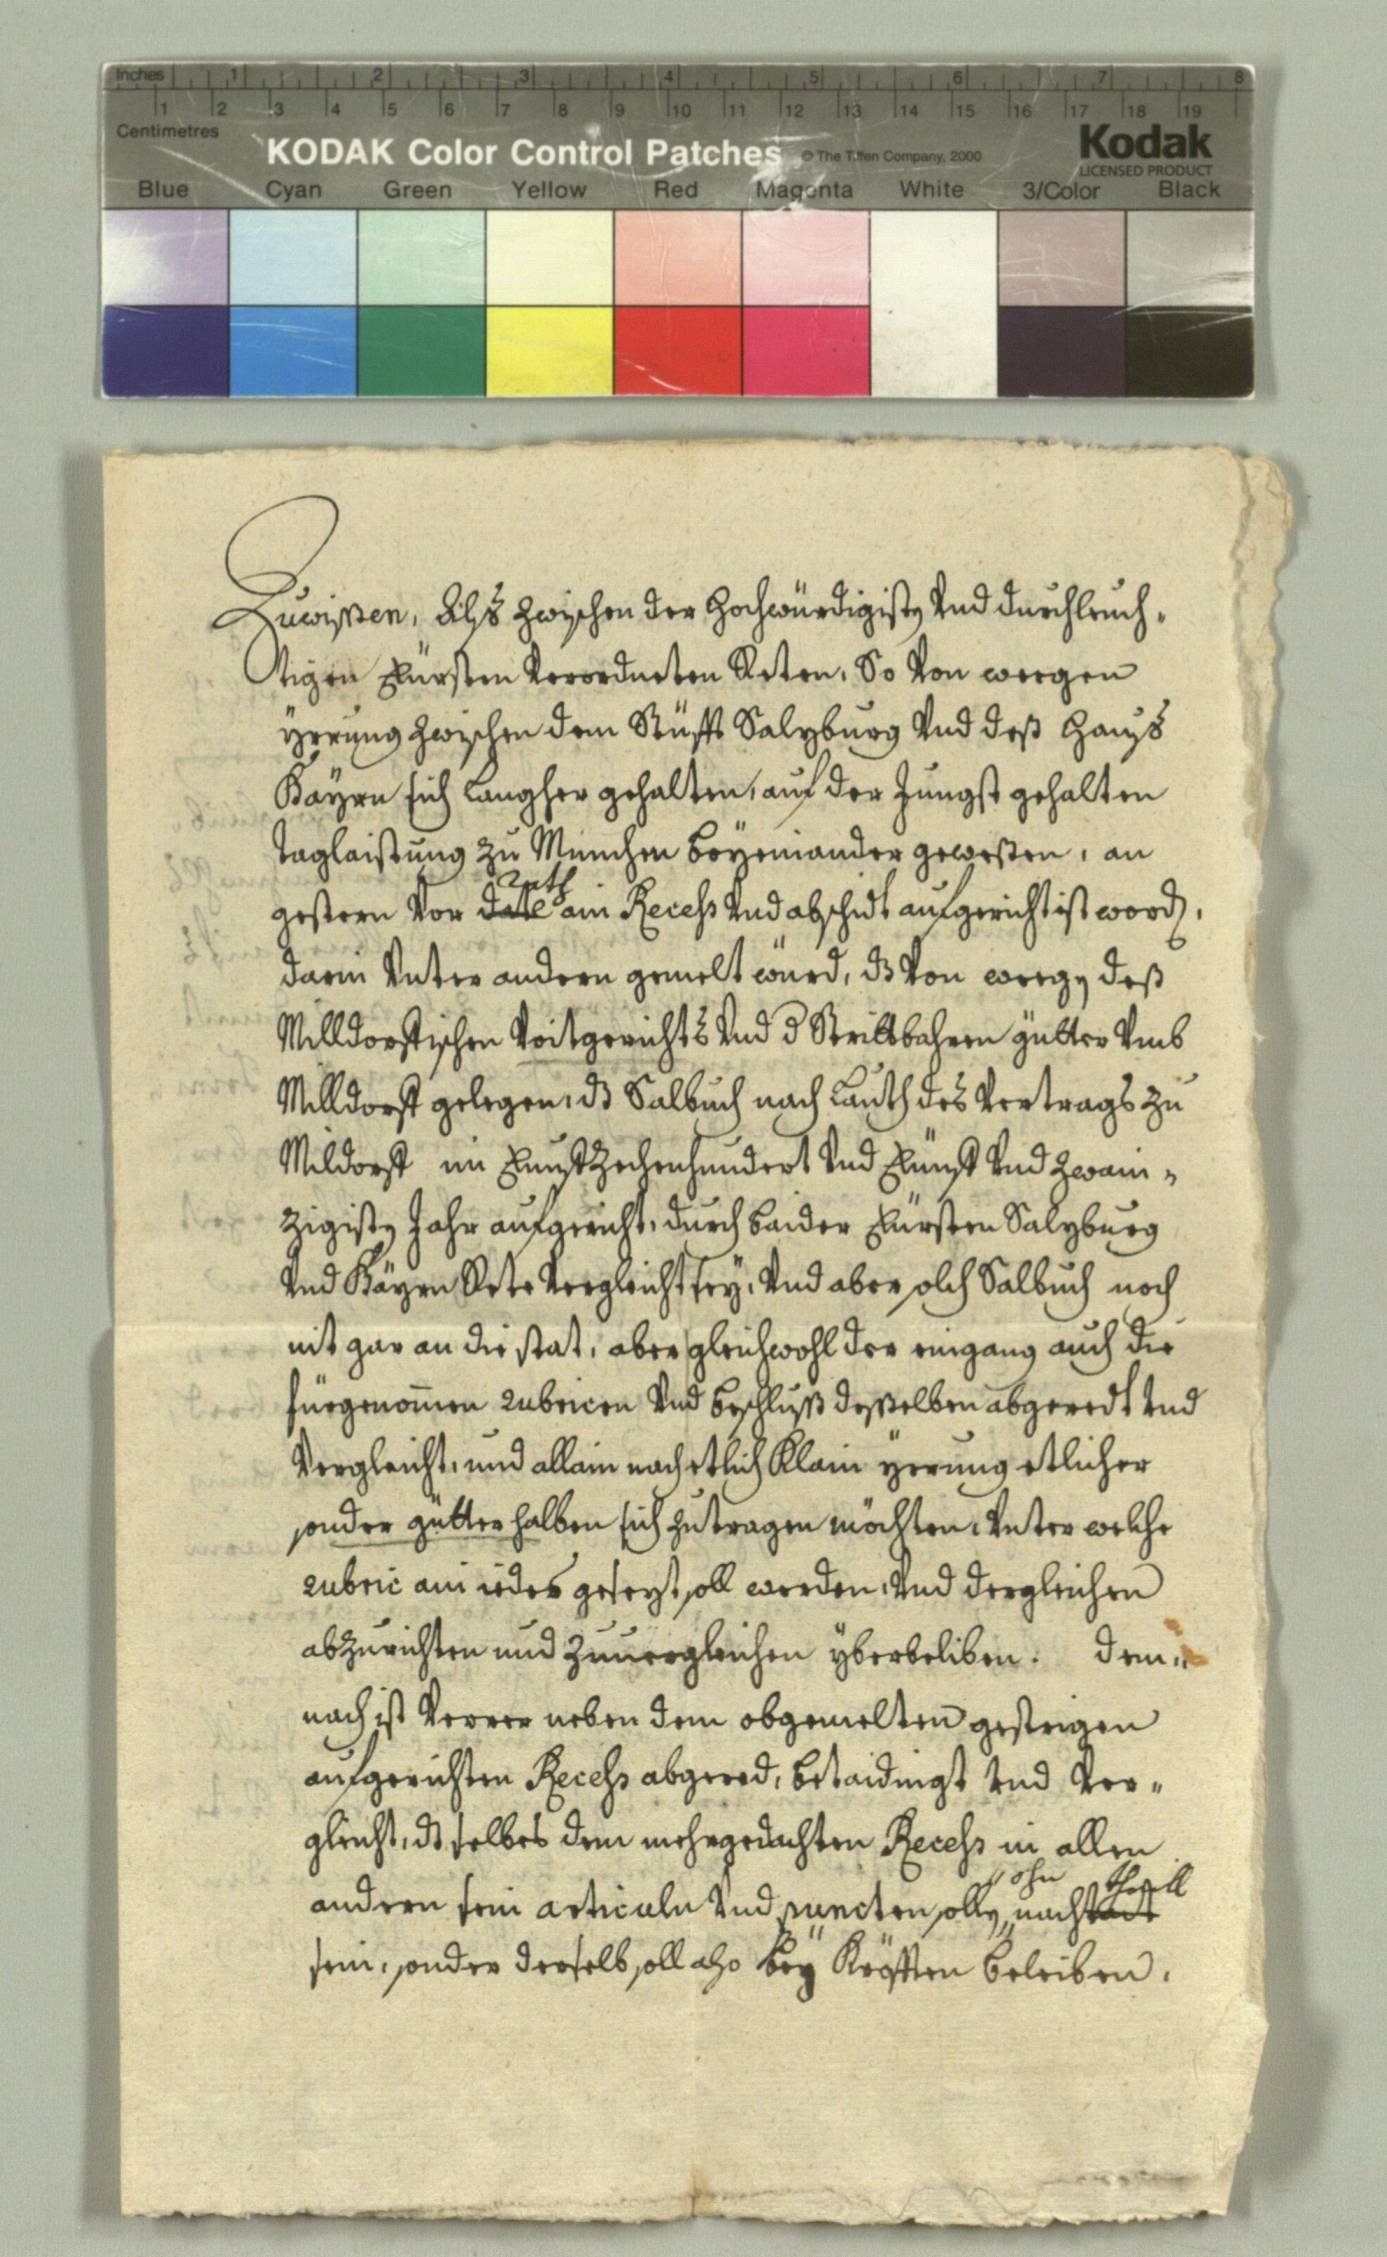 Inches 1 2 3 4 5 6 7 8
1 2 3 4 5 6 7 8 9 10 11 12 13 14 15 16 17 18 19
Centimetres
KODAK Color Control Patches © The Tiffen Company, 2000
Kodak
LICENSED PRODUCT
Blue Cyan Green Yellow Red Magenta White 3/Color Black
Zuwißen, Alß zwischen der Hochwürdigisten Vnd durchleuch-
tigen Fürsten Verordneten Reten, So Von weegen
yrrung zwischen dem Stüfft Salzburg Vnd deß Hauß
Bayrn sich langher gehalten, auf der Jungst gehalten
taglaistung zu München beyeinander gewesten, an
gestern Vor dato ain Recess Vnd abschidt aufgericht ist word,
darin Vnter andern gemelt würd, dz Von weegen deß
Milldorffischen Voitgerichts Vnd d Strittbahren gütter Vmb
Milldorff gelegen, dz Salbuch nach Lauth des Vertrags zu
Mildorff im Funffzechenhundert Vnd Fünff Vnd zwain-
zigisten Jahr aufgericht, durch baider Fürsten Salzburg
Vnd Bayrn Rete Vergleicht sey, Vnd aber solch Salbuch noch
nit gar an die stat, aber gleichwohl der eingang auch die
fürgenom̅en rubricen Vnd beschluß deßselben abgeredt Vnd
Vergleicht, und allain nach etlich Klain yrrung etlicher
sonder gütter halben sich zutragen möchten, Vnter welche
rubric ain iedes gesezt soll werden, Vnd dergleichen
abzurichten und zuuergleichen yberbeliben. dem-
nach ist Verrer neben dem obgemelten gestrigen
aufgerichten Recess abgered, betaidingt Vnd Ver-
gleicht, dz selbes dem mehrgedachten Recess in allen
ohn thaill
andern sein articuln Vnd puncten solle, nach
sein, sonder derselb soll also bey Kröfften beleiben.